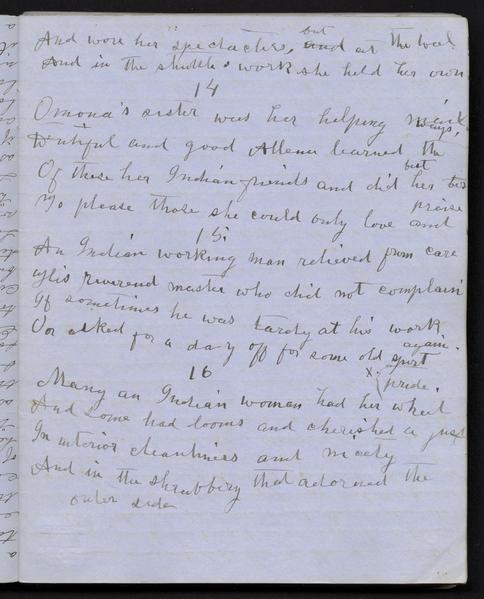 but
And wore her spectacles, and at the weel
And in the shuttle work she held her own
14
Omona's sister was her helping maid
Dutiful and good Allena learned the ways,
Of these her Indian friends and did her best
To please those she could only love and praise
15
An Indian working man relieved from care
His reverend master who did not complain
If sometimes he was tardy at his work
Or asked for a day off for some old sport again.
16
x pride.
Many an Indian woman had her wheel
And some had looms and cherished a just
In interior cleanliness and nicety
And in the shrubbery that adorned the
outer side